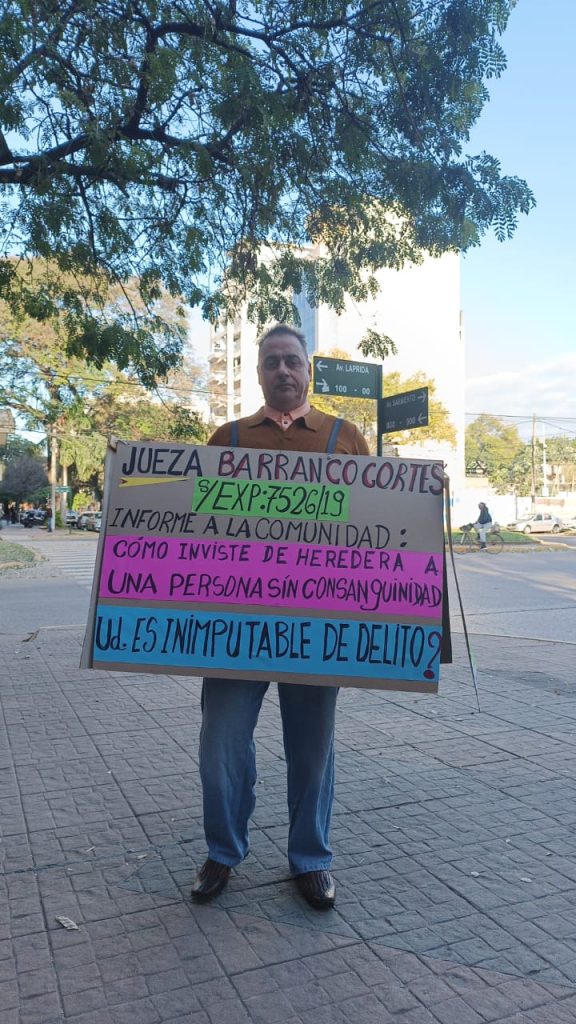 Av. LAPRIDA
100 - 00
Av. SARMIENTO
JUEZA BARRANCO CORTES
S/EXP:7526/19
INFORME A LA COMUNIDAD:
CÓMO INVISTE DE HEREDERA A
UNA PERSONA SÍN CONSANGUINIDAD
Ud. ES INIMPUTABLE DE DELITO?